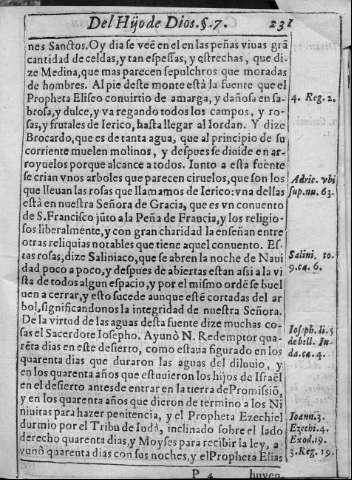 Del Hijo de Dios. §. 7. 231
nes Sanctos. Oy dia se veē en el en las peñas viuas grā
cantidad de celdas, y tan espessas, y estrechas, que di-
ze Medina, que mas parecen sepulchros que moradas
de hombres. Al pie deste monte està la fuente que el
Propheta Eliseo conuirtio de amarga, y dañosa en sa-
brosa, y dulce, y va regando todos los campos, y ro-
sas, y frutales de Ierico, hasta llegar al Iordan. Y dize
Brocardo, que es de tanta agua, que al principio de su
corriente muelen molinos, y despues se diuide en ar-
royuelos porque alcance a todos. Iunto a esta fuente
se crian vnos arboles que parecen ciruelos, que son los
que lleuan las rosas que llamamos de Ierico: vna dellas
està en nuestra Señora de Gracia, que es vn conuento
de S. Francisco jūto a la Peña de Francia, y los religio-
sos liberalmente, y con gran charidad la enseñan entre
otras reliquias notables que tiene aquel conuento. Es-
tas rosas, dize Saliniaco, que se abren la noche de Naui
dad poco a poco, y despues de abiertas estan assi a la vi
sta de todos algun espacio, y por el mismo ordē se buel
uen a cerrar, y esto sucede aunque estē cortadas del ar
bol, significandonos la integridad de nuestra Señora.
De la virtud de las aguas desta fuente dize muchas co-
sas el Sacerdote Iosepho. Ayunò N. Redemptor qua-
rēta dias en este desierto, como estaua figurado en los
quarenta dias que duraron las aguas del diluuio, y
en los quarenta años que estuuieron los hijos de Israel
en el desierto antes de entrar en la tierra de Promissiō,
y en los quarenta años que dieron de termino a los Ni
niuitas para hazer penitencia, y el Propheta Ezechiel
durmio por el Tribu de Iudà, inclinado sobre el lado
derecho quarenta dias, y Moyses para recibir la ley, a
yunò quarenta dias con sus noches, y el Propheta Elias
P 4 huyen-
4. Reg. 2.
Adric. vbi
sup. nu. 63.
Salini. to.
9. ca. 6.
Ioseph. li. 5
de bell. Iu-
da. ca. 4.
Ioann. 3.
Ezechi. 4.
Exod. 19.
3. Reg. 19.